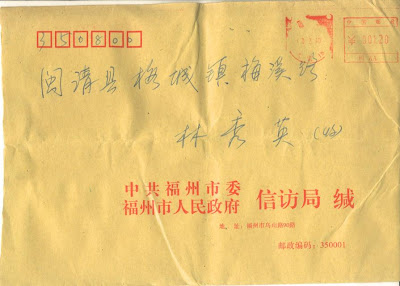 350800
闽清县梅城镇梅溪路
林秀英(收)
中共福州市委
福州市人民政府 信访局 缄
地 址：福州市乌山路96号
邮政编码：350001